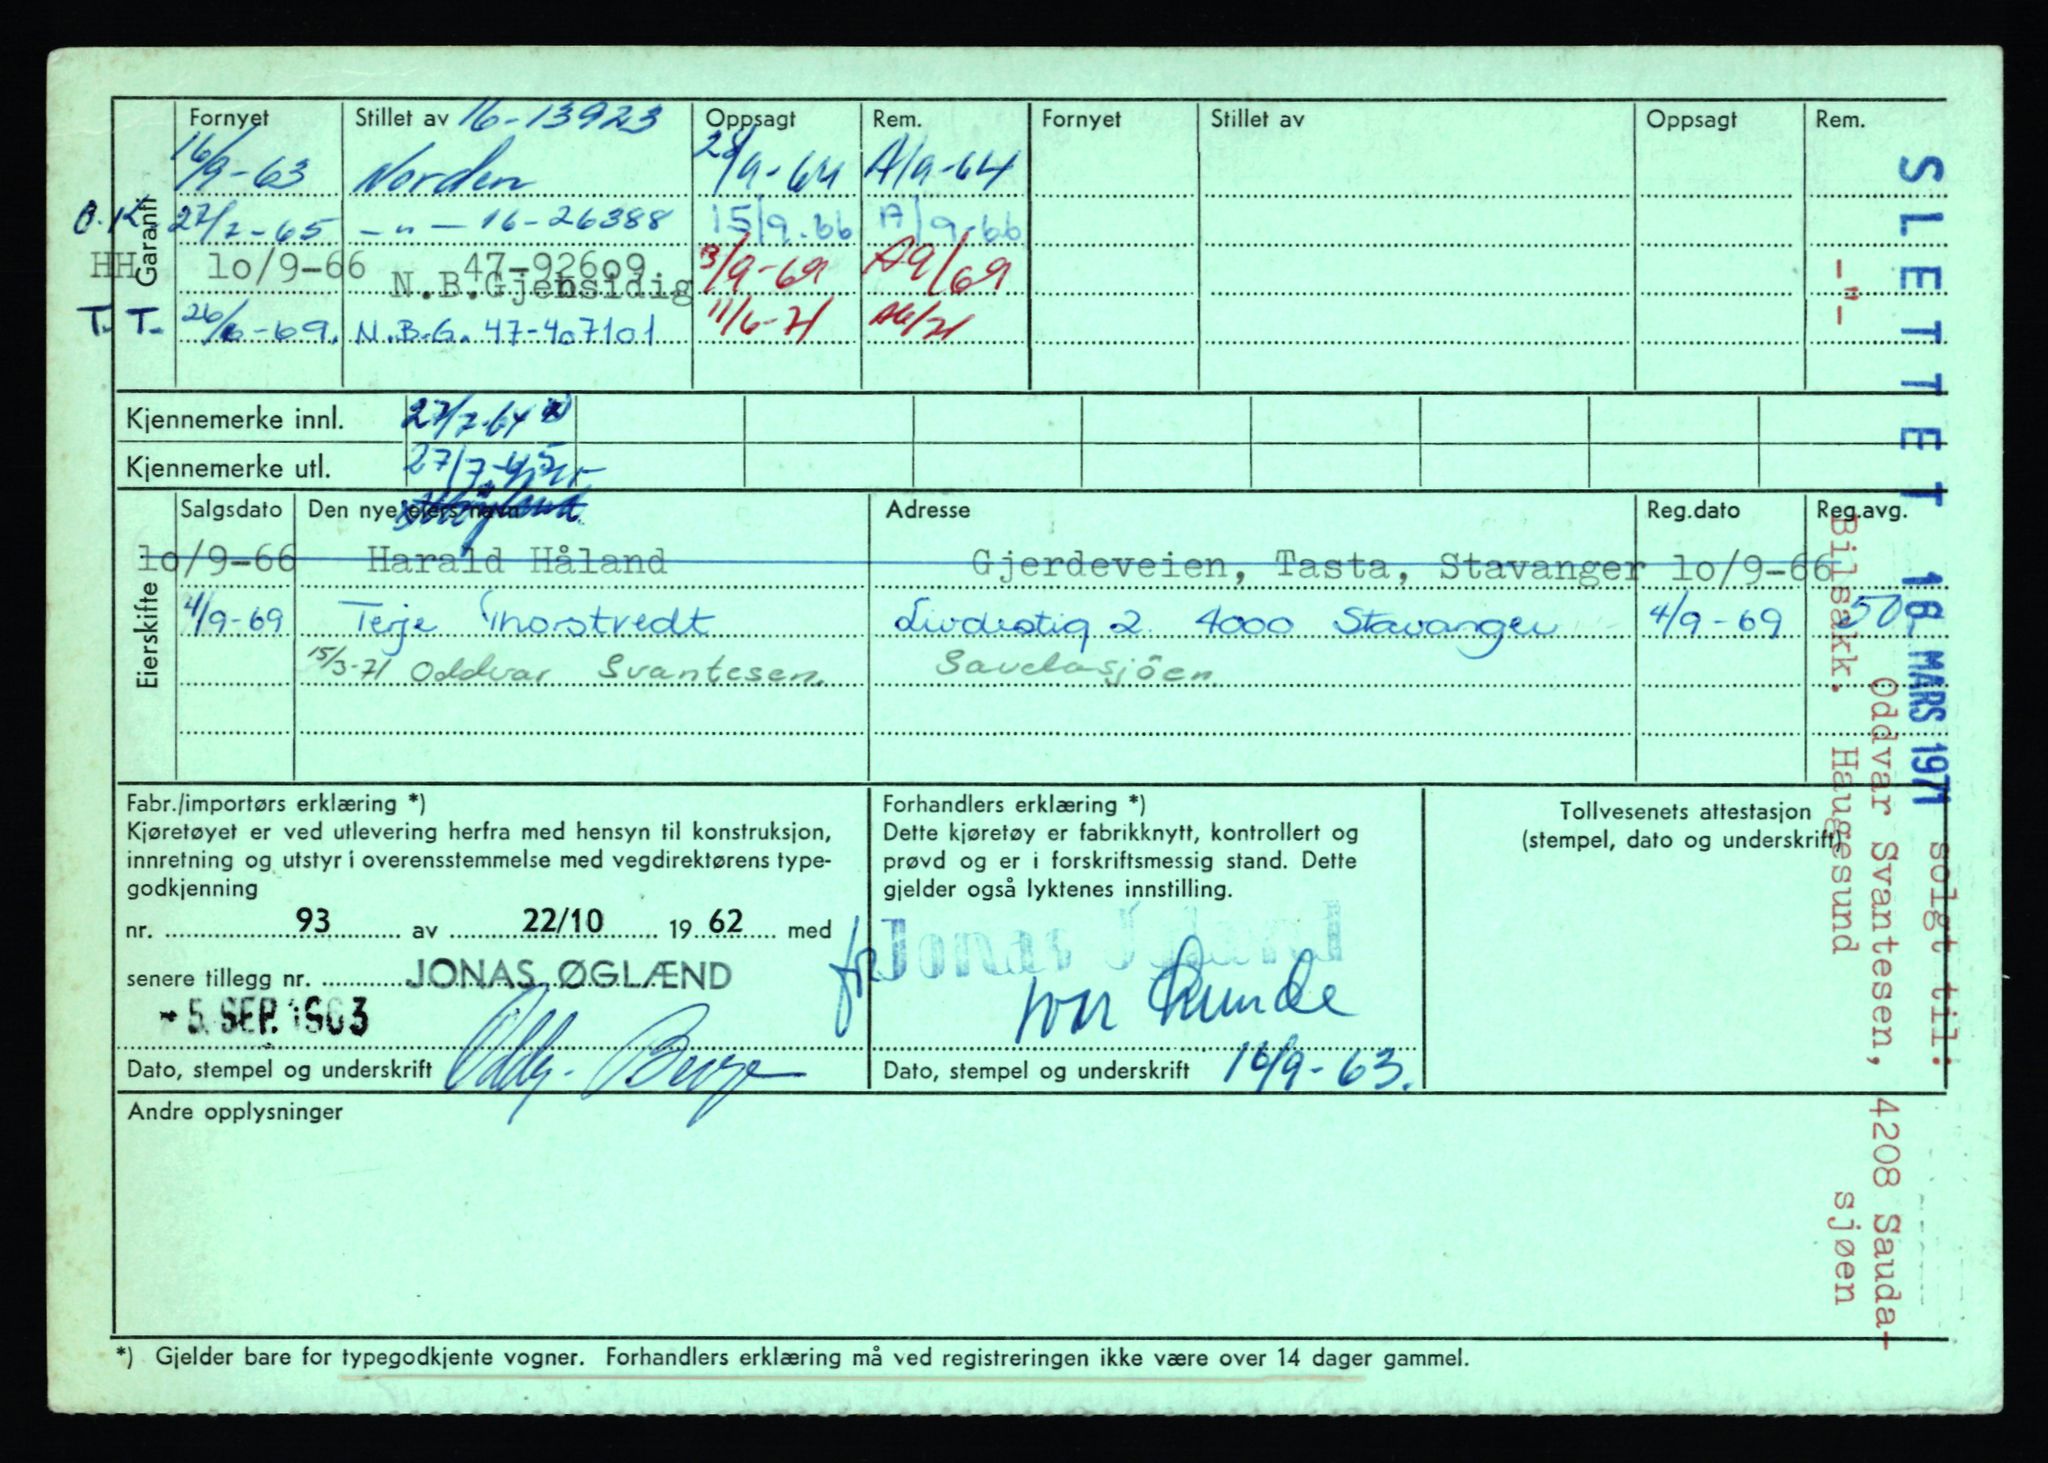 Fornyet Stillet av 16-13923 Oppsagt Rem. Fornyet Stillet av Oppsagt Rem.
16/9-63 Norden 28/9-64 A/9-64
O.K. 27/7-65 -"- 16-26388 15/9-66 A/9-66
HH 10/9-66 47-92609 3/9-69 A9/69
N.B.Gjensidig
T.T. 26/6-69. N.B.G. 47-407101 11/6-71 A6/71
Garanti
Kjennemerke innl. 27/7-64
Kjennemerke utl. 27/7-65
Salgsdato Den nye eiers navn Adresse Reg.dato Reg.avg.
10/9-66 Harald Håland Gjerdeveien, Tasta, Stavanger 10/9-66
4/9-69 Terje Thorstvedt 2 4000 Stavanger 4/9-69 50,
15/3-71 Oddvar Svantesen. Saudasjöen
Eierskifte
Fabr./importørs erklæring *)
Kjøretøyet er ved utlevering herfra med hensyn til konstruksjon,
innretning og utstyr i overensstemmelse med vegdirektørens type-
godkjenning
nr. 93 av 22/10 1962 med
senere tillegg nr. JONAS ØGLÆND
-5. SEP. 1963
Dato, stempel og underskrift
Forhandlers erklæring *)
Dette kjøretøy er fabrikknytt, kontrollert og
prøvd og er i forskriftsmessig stand. Dette
gjelder også lyktenes innstilling.
fr Jonas
Dato, stempel og underskrift 16/9-63.
Tollvesenets attestasjon
(stempel, dato og underskrift)
Andre opplysninger
*) Gjelder bare for typegodkjente vogner. Forhandlers erklæring må ved registreringen ikke være over 14 dager gammel.
SLETTET 18 MARS 1971 solgt til:
Oddvar Svantesen, 4208 Sauda-
sjøen
-"- Bilsakk. Haugesund